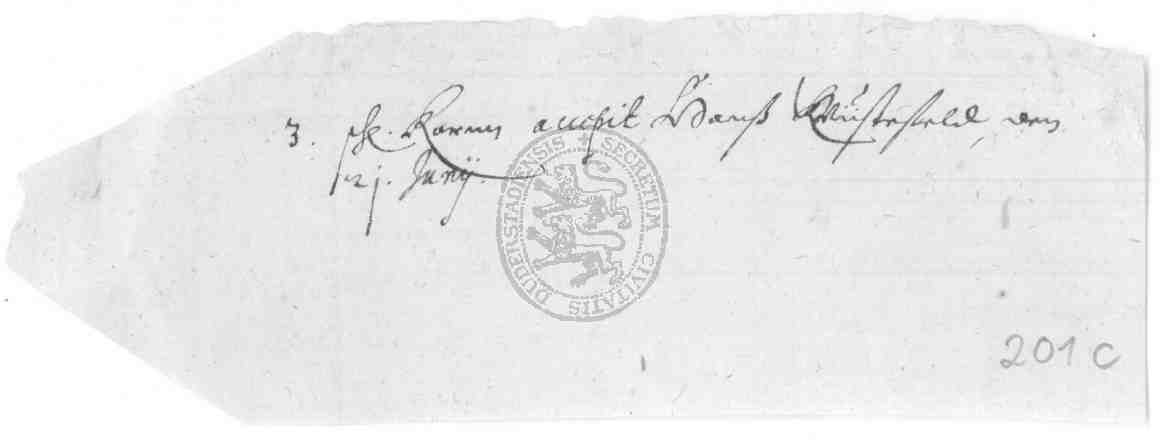 3. schl. Kornn accepit Hanß Wüstefeld, den
21. Junij.
SECRETUM CIVITATIS DUDERSTADIENSIS
201 c